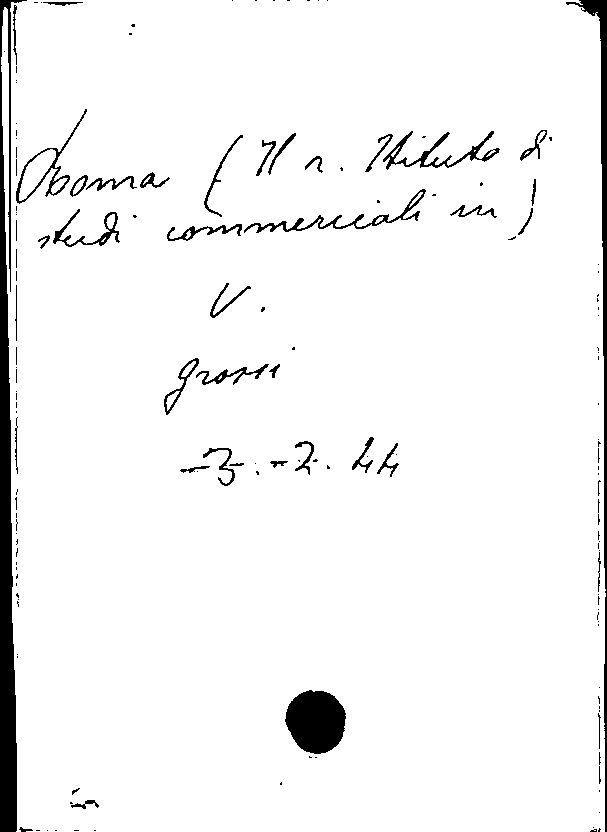 Roma (Il r. Istituto di
studi commerciali in)
V.
Grossi
-3.-2.44